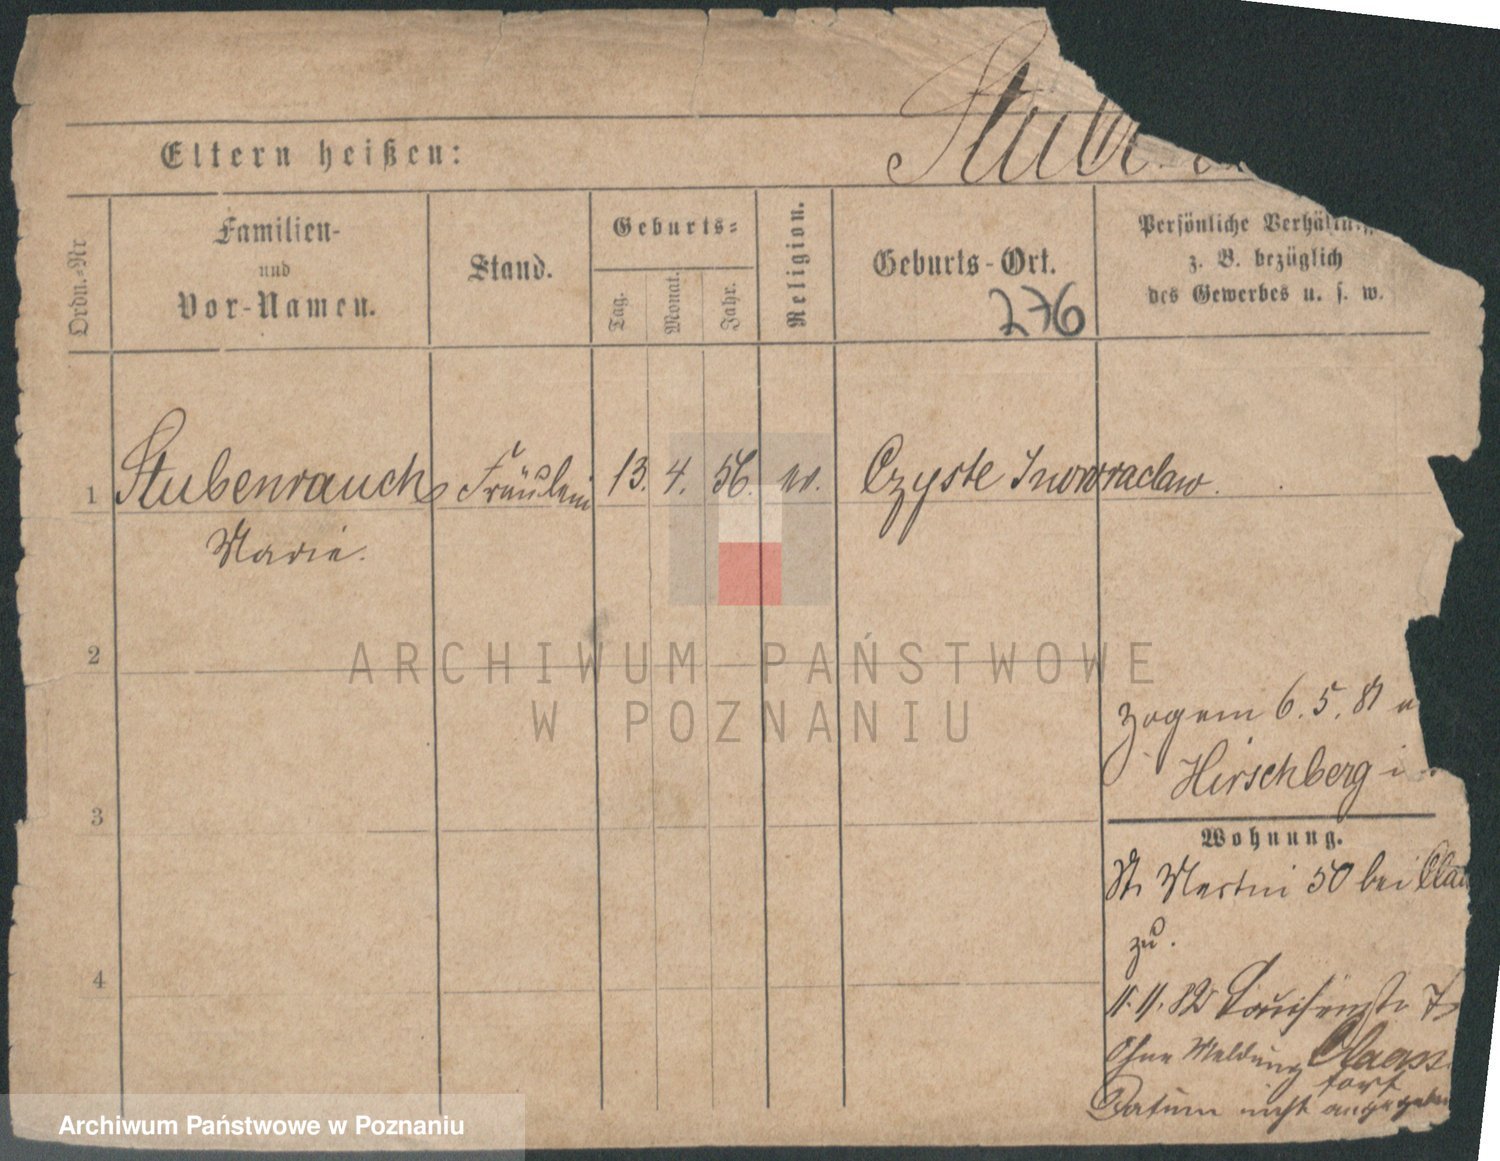 Eltern heißen:
Ordn.-Nr.
Familien-
und
Vor-Namen.
Stand.
Geburts-
Tag.
Monat.
Jahr.
Religion.
Geburts-Ort.
276
Persönliche
z. B. bezüglich
des Gewerbes u. s. w.
1 Stubenrauch Fräulein 13. 4. 56. ev. Czyste Inowraclaw.
Marie.
2
3
4
Zogem 6. 5. 81
Hirschberg i
Wohnung.
St. Martni 50 bei
zu.
11. 11. 82 Louisenstr 7
Ohne Meldung Claass
fort
Datum nicht angegeben
ARCHIWUM PAŃSTWOWE
W POZNANIU
Archiwum Państwowe w Poznaniu